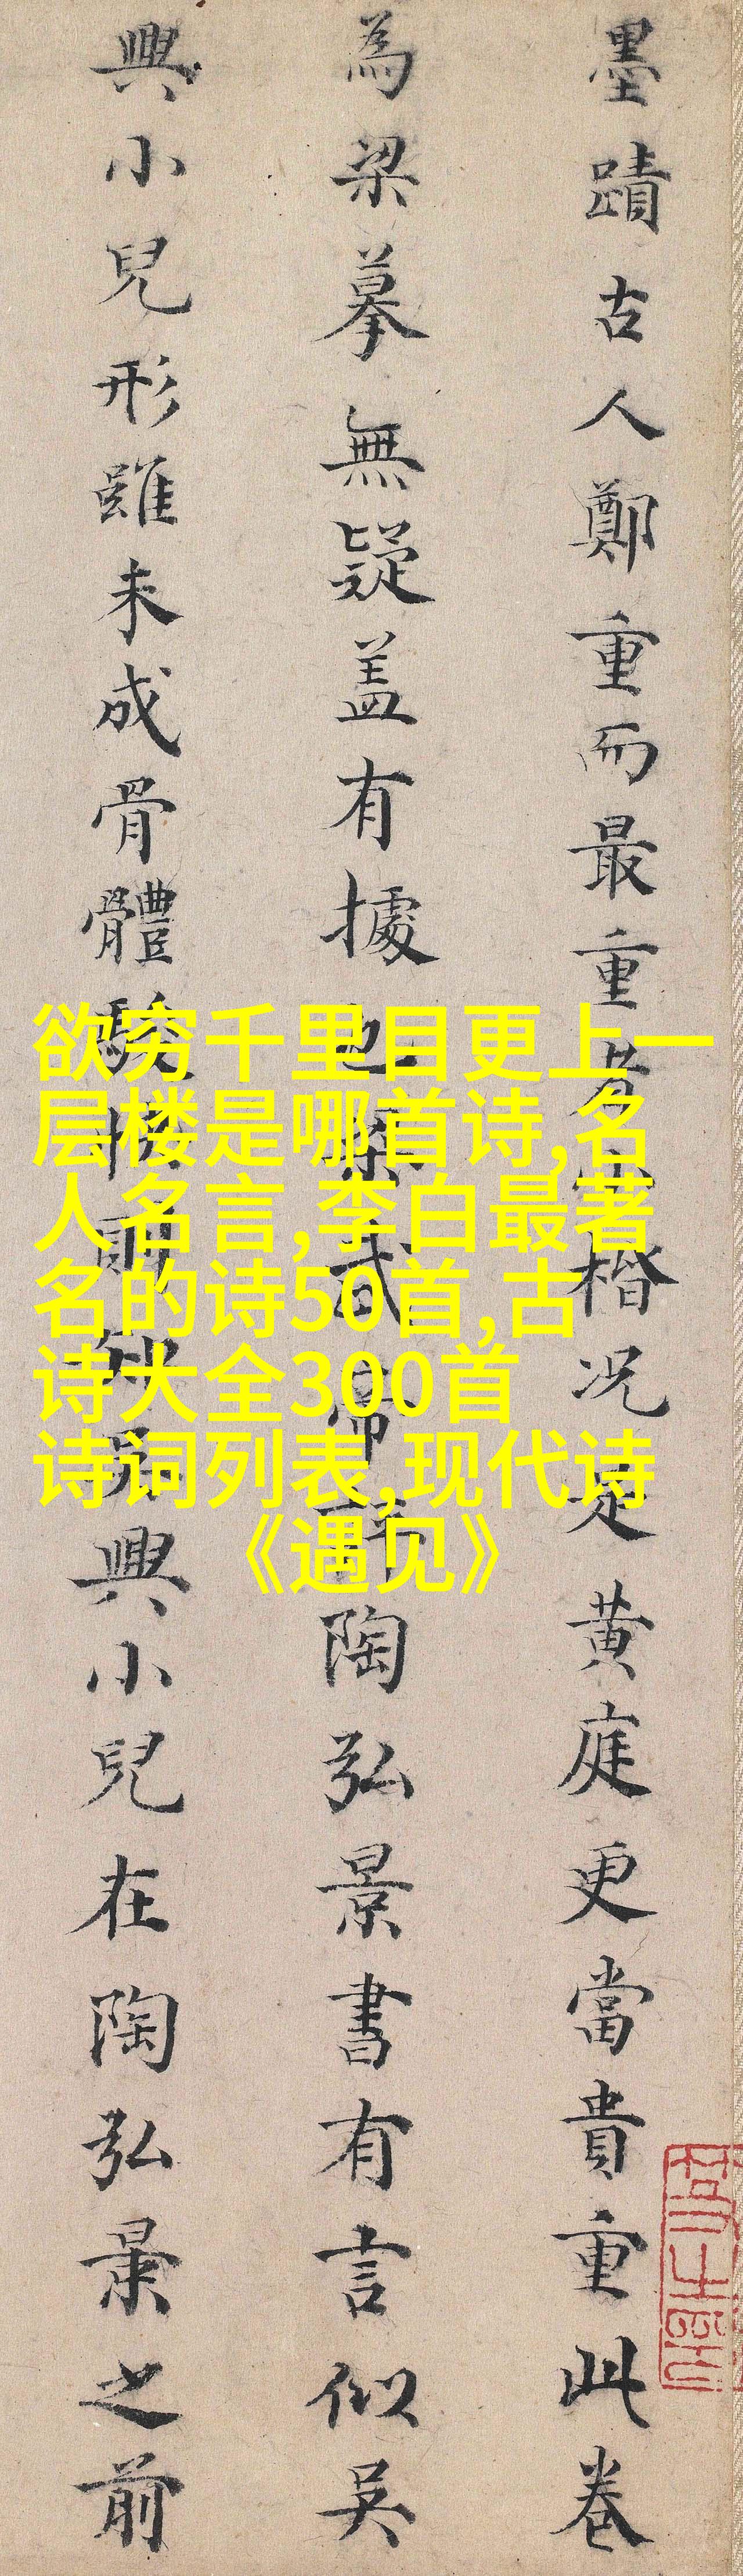 墨蹟古人鄭重而最重者小楷况是黄庭更當貴重此卷
為梁摹無疑蓋有據也梁武帝評陶弘景書有言似吴
興小兒形雖未成骨體駿快則知吴興小兒在陶弘景之前
欲穷千里目更上一
层楼是哪首诗,名
人名言,李白最著
名的诗50首,古
诗大全300首
诗词列表,现代诗
《遇见》